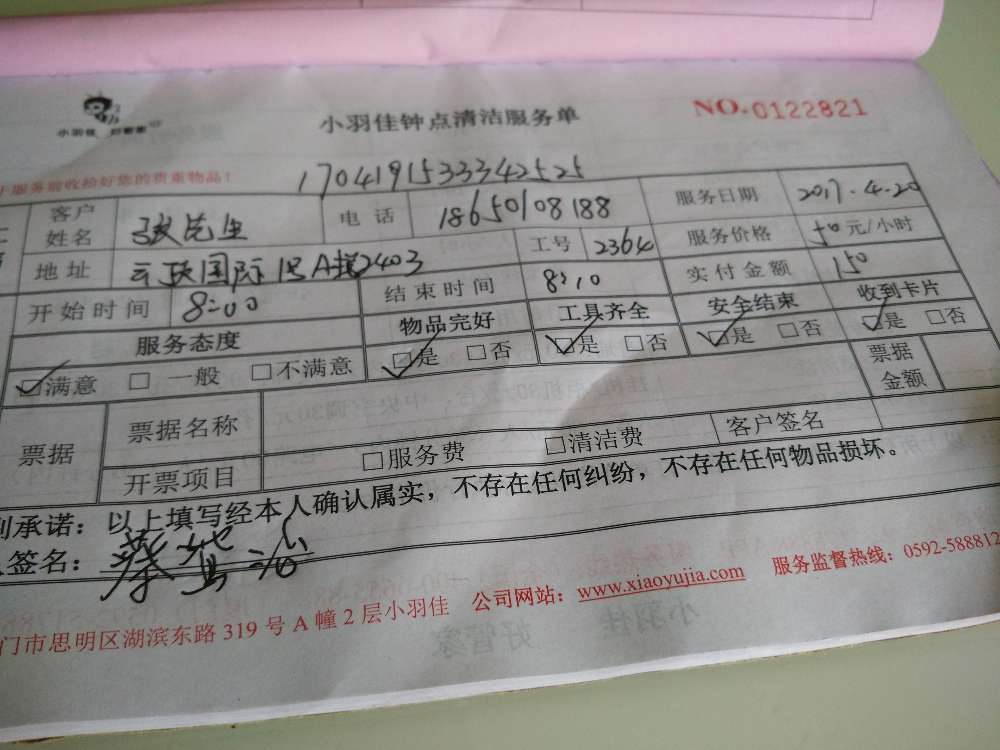 小羽佳
小羽佳钟点清洁服务单
NO.0122821
于服务前收拾好您的贵重物品！
1704191533342525
客户姓名 张先生 电话 18650108188 服务日期 2017.4.20
地址 国际 A 2403 工号 2364 服务价格 50元/小时
开始时间 8:00 结束时间 8:10 实付金额 150
服务态度 物品完好 工具齐全 安全结束 收到卡片
☑满意 □一般 □不满意 ☑是 □否 ☑是 □否 ☑是 □否 ☑是 □否
票据 票据名称 票据金额
开票项目 □服务费 □清洁费 客户签名
承诺：以上填写经本人确认属实，不存在任何纠纷，不存在任何物品损坏。
签名：
门市思明区湖滨东路 319 号 A 幢 2 层小羽佳 公司网站：www.xiaoyujia.com 服务监督热线：0592-588812
小羽佳
好管家